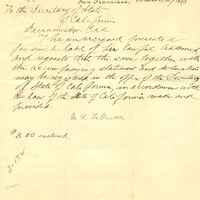 San Francisco,
To the Secretary of State
of California
Sacramento Cal
The undersigned presents a
fac simile label of his can for
and requests that the same together with
the accompanying statement and declaration
may be registered in the office of the Secretary
of State of California, in accordance with
the law of the State of California made and
provided
$3.00 inclosed